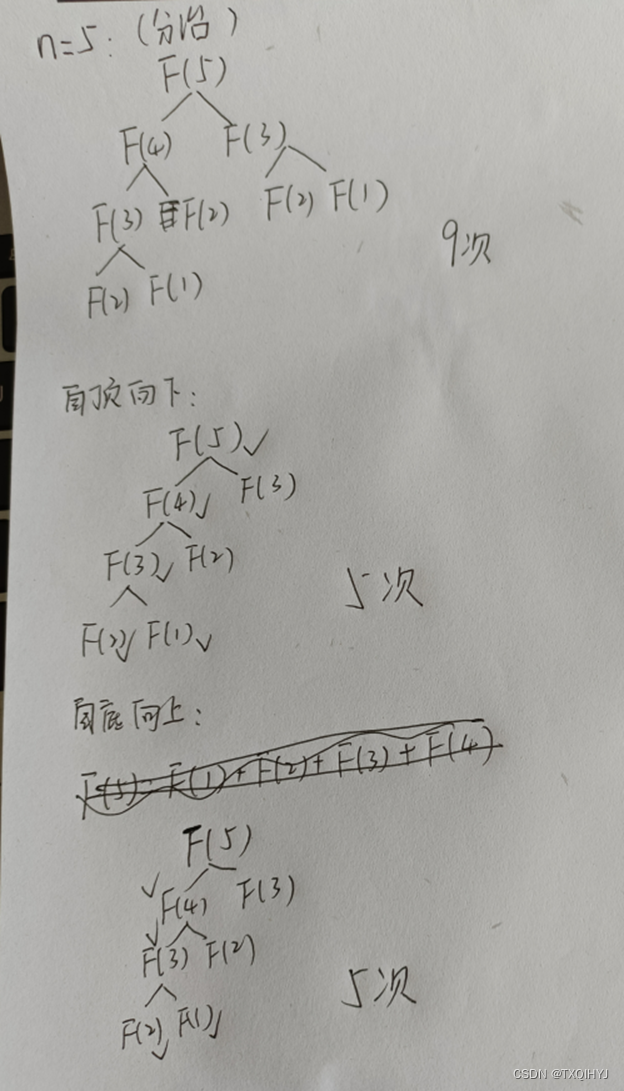 n=5:(分治)
F(5)
F(4) F(3)
F(3) F(2) F(2) F(1)
9次
F(2) F(1)
自顶向下:
F(5)✓
F(4)✓ F(3)
F(3)✓ F(2)
5次
F(2)✓ F(1)✓
自底向上:
F(5)=F(1)+F(2)+F(3)+F(4)
F(5)
✓F(4) F(3)
✓F(3) F(2)
5次
F(2)✓ F(1)✓
CSDN @TXQIHYJ